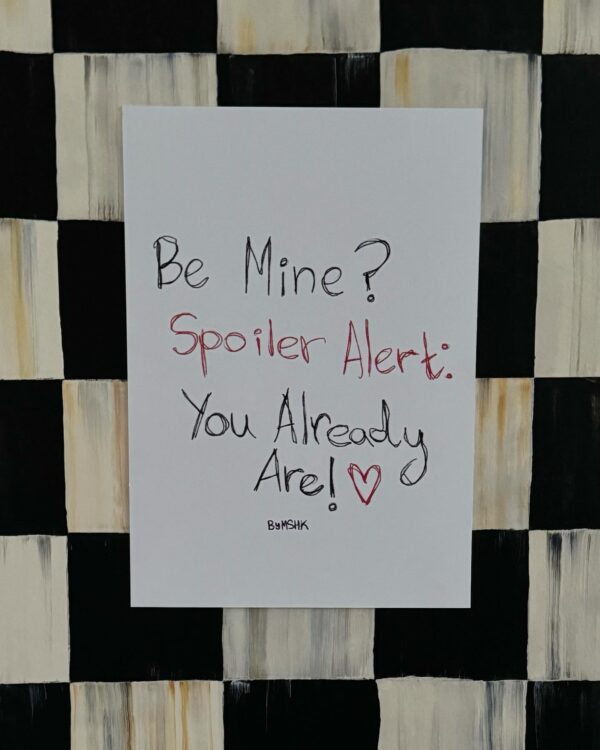 Be Mine?
Spoiler Alert:
You Already
Are!
ByMSHK